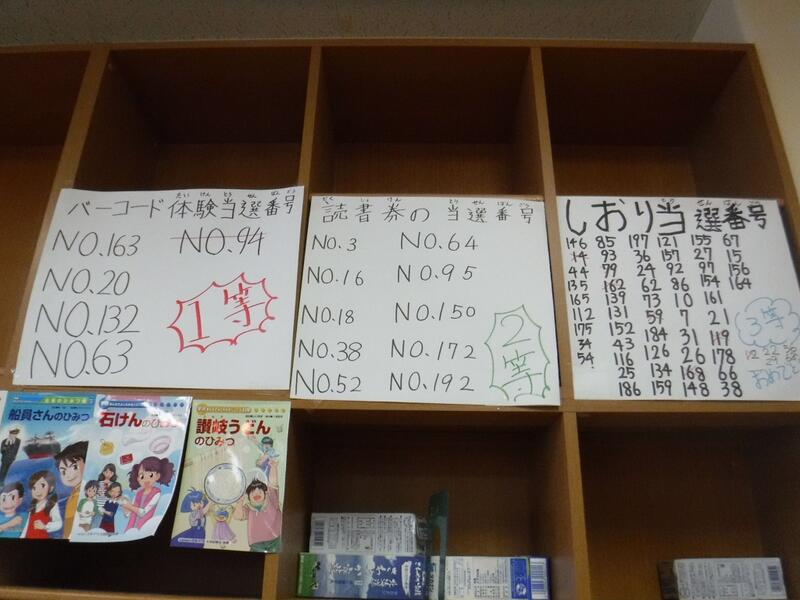 バーコード体験当選番号
たいけんとうせんばんごう
NO.163
NO.94
NO.20
NO.132
NO.63
1等
読書券の当選番号
NO.3
NO.64
NO.16
NO.95
NO.18
NO.150
NO.38
NO.172
NO.52
NO.192
2等
しおり当選番号
146 85 197 121 155 67
14 93 36 157 27 15
44 79 24 92 97 156
135 162 62 86 154 164
165 139 73 10 161
112 131 59 7 21
175 152 184 31 119
34 43 126 26 178
54 116 134 168 66
25 159 148 38
186
3等
おめでとう
船員さんのひみつ
石けんのひみつ
讃岐うどんのひみつ